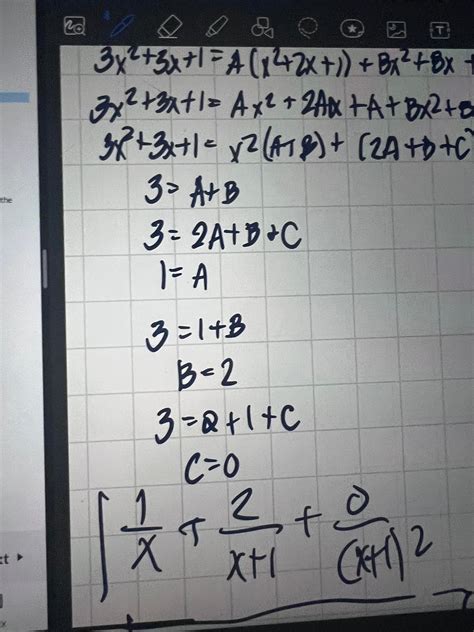 the
3x²+3x+1 = A(x²+2x+1) + Bx² + Bx +
3x²+3x+1 = Ax² + 2Ax + A + Bx2 + B
3x²+3x+1 = x²(A+B) + (2A+B+C)
3 = A+B
3 = 2A+B+C
1 = A
3 = 1+B
B = 2
3 = 2+1+C
C = 0
∫ 1/x + 2/(x+1) + 0/(x+1)²